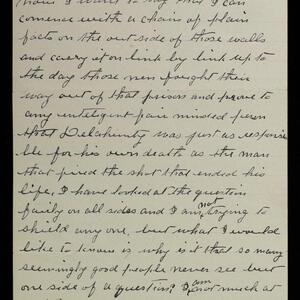 now I want to say that I can
comence with a chain of plain
facts on the out side of those walls
and carry it on link by link up to
the day those men fought their
way out of that prison and prove to
any inteligent fair minded person
that Delahunty was just as responsi
ble for his own death as the man
that fired the shot that ended his
life, I have looked at the question
fairly on all sides and I am not trying to
shield any one, but what I would
like to know is why is it that so many
seemingly good people never see but
one side of a question? I am not much at